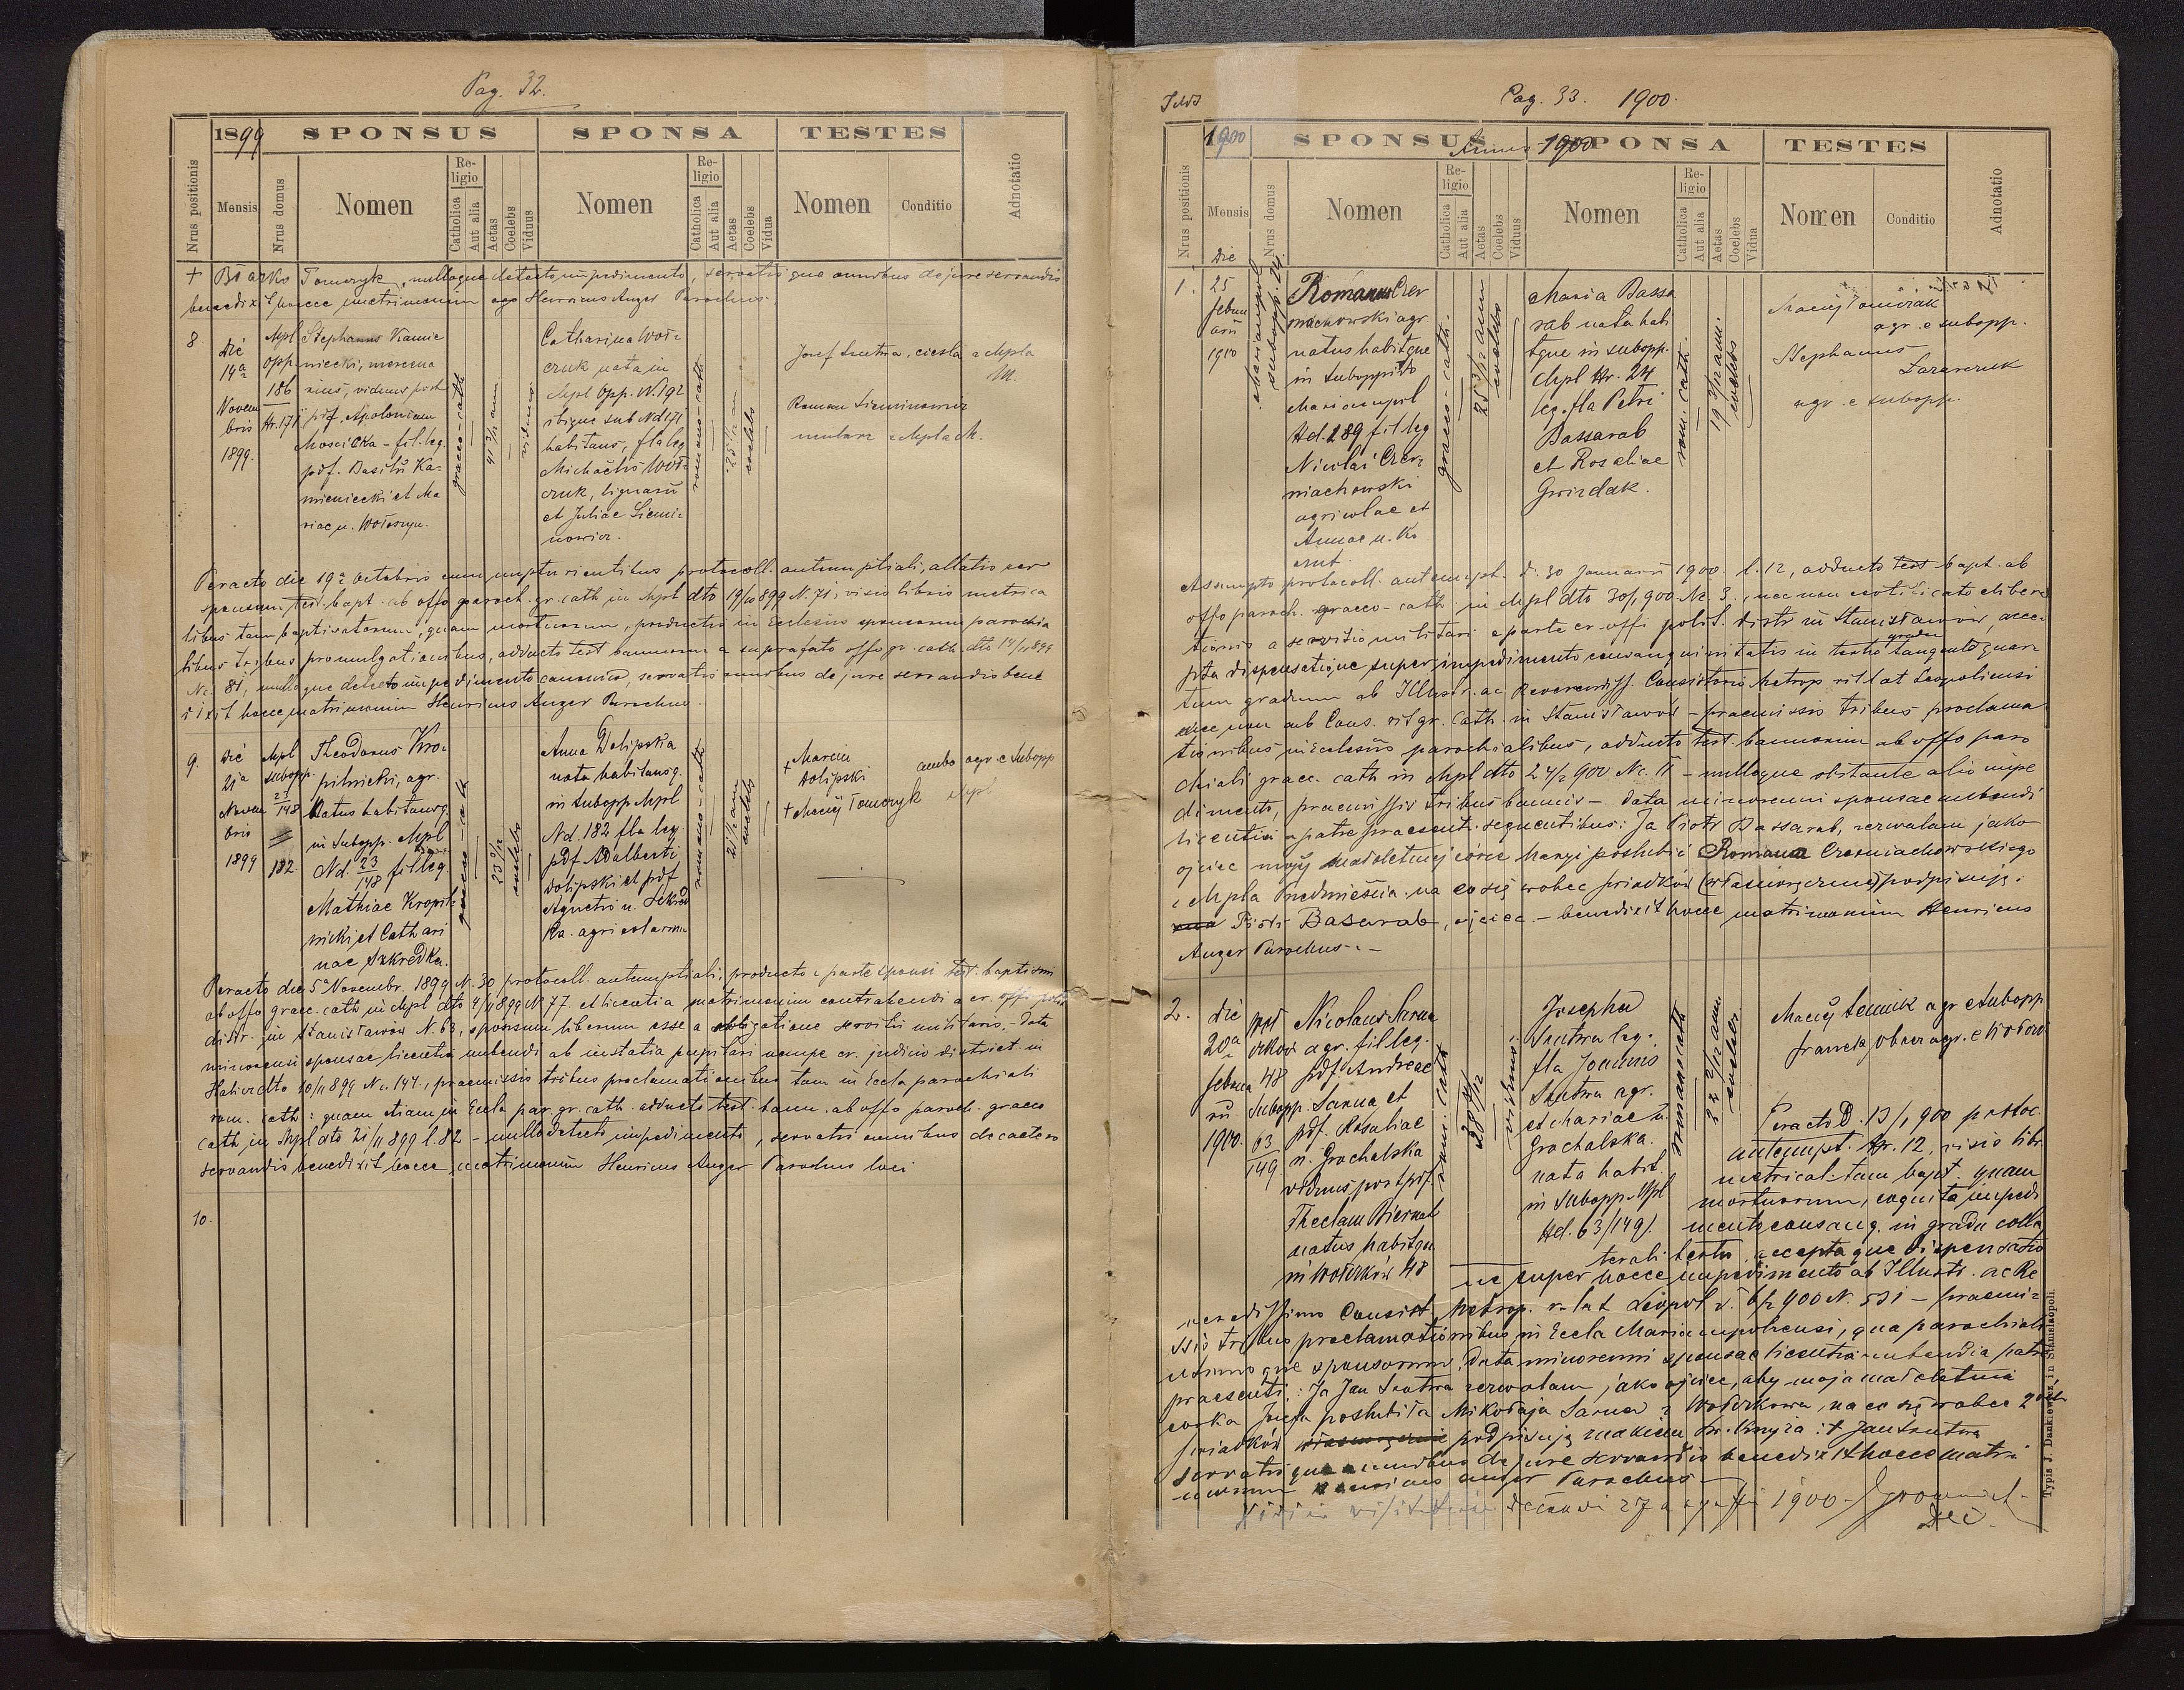 Pag. 32.
1899 SPONSUS SPONSA TESTES
Nrus positionis
Mensis
Nrus domus
Nomen
Religio
Catholica
Aut alia
Aetas
Coelebs
Viduus
Nomen
Religio
Catholica
Aut alia
Aetas
Coelebs
Vidua
Nomen
Conditio
Adnotatio
Tomczyk, nulloque detecto impedimento, servatisque omnibus de jure servandis
benedixi hocce matrimonium ego Henricus Auger Parochus.
8.
Die
14a
Novem
bris
1899.
Mpl
Opp.
186
Nr. 171
Stephanus Kamie
niecki, merce
viduus post
pdf. Apoloniam
Mościcka - fil. leg.
pdf. Basilii Ka-
mieniecki et Ma
riae n. Wołoszyn.
graeco-cath
viduus
Catharina Woź-
czuk nata in
Mpl Opp. N. 192
ibique sub Nd 171
habitans, fla leg
Michaelis Woź-
czuk, lignarii
et Juliae Siemi-
nowicz.
romano-cath
coelebs
Josef Szutra, cieśla z Mpla
M.
Roman Sieminowicz
mularz z Mpla M.
Peracto die 19a Octobris cum nupturientibus protocoll. antenuptiali, allatis per
sponsum test. bapt. ab offo paroch. gr. cath in Mpl dto 19/10 899 N. 71, visis libris metrica
libus tam baptisatorum, quam mortuorum, productis in Ecclesiis sponsorum parochia
libus tribus promulgationibus, adducto test bannorum a supra fato offo gr. cath. dto 14/11 899
No 81, nulloque detecto impedimento canonico, servatis omnibus de jure servandis bene
dixit hocce matrimonium Henricus Auger Parochus.
9.
Die
21a
Novem
bris
1899
Mpl
subopp.
23/148
182.
Theodorus Kro-
pilnicki, agr.
natus habitansq.
in Subopp. Mpl
Nd. 23/148 fil leg
Mathiae Kropil-
nicki et Cathari
nae Szkredka.
graeco-cath
23 9/12
coelebs
Anna Dolipska
nata habitansq.
in Subopp Mpl
Nd. 182 fla leg.
pdf Adalberti
Dolipski et pdf
Agnetis n. Szkred
ka agricolarum
romano-cath
coelebs
+ Marcin
Dolipski
+ Maciej Tomczyk
ambo agr. e Subopp
Mpl
Peracto die 5a Novembr. 1899 N. 30 protocoll. antenuptiali, producto e parte sponsi test. baptismi
ab offo graec. cath in Mpl dto 4/11 899 N. 77. et licentia matrimonium contrahendi a cr. offi polit
distr. in Stanisławów N. 63, sponsum liberum esse a obligatione servitii militaris, - Data
minorensi sponsae licentia nubendi ab instatia pupilari nempe cr. judicio district. in
Halicz dto 20/11 899 No. 147., praemissis tribus proclamationibus tam in Eccla parochiali
rom. cath: quam etiam in Eccla par. gr. cath. adducto test. bann. ab offo paroch. graeco
cath. in Mpl dto 21/11 899 l. 82 - nullo detecto impedimento, servatis omnibus de caetero
servandis benedixit hocce matrimonium Henricus Auger Parochus loci
10.
Pag. 33. 1900.
1900 SPONSUS SPONSA TESTES
Annus 1900
Nrus positionis
Mensis
Nrus domus
Nomen
Religio
Catholica
Aut alia
Aetas
Coelebs
Viduus
Nomen
Religio
Catholica
Aut alia
Aetas
Coelebs
Vidua
Nomen
Conditio
Adnotatio
1.
Die
25
febru
arii
1900
Mariampol
Subopp. 24.
Romanus Czer
niachowski agr.
natus habitque
in Suboppido
Mariampol
Nd. 289 fil leg
Nicolai Czer-
niachowski
agricolae et
Annae n. Ko
graeco-cath.
25 3/12 ann
coelebs
Maria Bassa
rab nata habi
tque in subopp.
Mpl Nr. 24
leg. fla Petri
Bassarab
et Rosaliae
Gwizdak.
rom. cath.
coelebs
Maciej Tomczak
agr. e subopp.
Stephanus
Lazarczuk
agr. e subopp.
Assumpto protocoll. antenupt. d. 30 Januarii 1900. l. 12, adducto test bapt. ab
offo paroch. graeco-cath in Mpl dto 30/1 900 No. 3., nec non certificato libera
tionis a servitio militari e parte cr. offi polit. distr in Stanisławów, acce-
pta dispensatione super impedimento consanguinitatis in tertio gradu tangente quar
tum gradum ab Illustr. ac Reverendiss. Consistorio Metrop. rit lat Leopoliensi
nec non ab Cons. rit gr. cath. in Stanisławów - praemissis tribus proclama
tionibus in ecclesiis parochialibus, adducto test. bannorum ab offo paro
chiali graec. cath in Mpl dto 24/2 900 No. 11 - nulloque obstante alio impe
dimento, praemissis tribus bannis - Data minorenni sponsae nubendi
licentia a patre praesenti sequentibus: Ja Piotr Bassarab, zezwalam jako
ojciec mojej małoletniej córce Maryi poślubić Romana Czerniachowskiego
z Mpla Przedmieścia na co się wobec świadków (własnoręcznie) podpisuję.
Piotr Basarab, ojciec. - benedixit hocce matrimonium Henricus
Auger Parochus. -
2.
Die
20a
februa
rii
1900.
48
Subopp.
63/149
Nicolaus Sarna
agr. fil leg.
pdf. Andreae
Sarna et
pdf. Rosaliae
n. Grochalska
viduus post pdf.
Theclam Biernat
natus habitque
in Wołczków 48
romano cath
viduus
Josepha
Szutra leg.
fla Joannis
Szutra agr.
et Mariae n.
Grochalska.
nata habit.
in Subopp. Mpl
Nd. 63/149/.
romano cath
coelebs
Maciej Sennik agr e Subopp
Peracto D. 13/1 900 protoc.
antenupt. Nr. 12, visis libr.
metrical. tam bapt. quam
mortuorum, cognita impedi
mento consang. in gradu colla
terali tertio, acceptaque dispensatio
ne super hocce impedimento ab Illustr. ac Re
verendissimo Consist. Metrop. r. lat Leopol d. 6/2 900 N. 531 - praemi-
ssis tribus proclamationibus in Eccla Mariampolensi, qua parochiali
utriusque sponsorum. Data minorenni sponsae licentia nubendi a patre
praesenti: Ja Jan Szutra zezwalam jako ojciec, aby moja małoletnia
córka Józefa poślubiła Mikołaja Sarna z Wołczkowa, na co się wobec 2
świadków podpisuję znakiem św. krzyża: + Jan Szutra
servatisque omnibus de jure servandis benedixit hocce matri
monium Henricus Auger Parochus
Vidi in visitatione decanali 1900.
Dec.
Typis J. Dankiewicz, in Stanislaopoli.